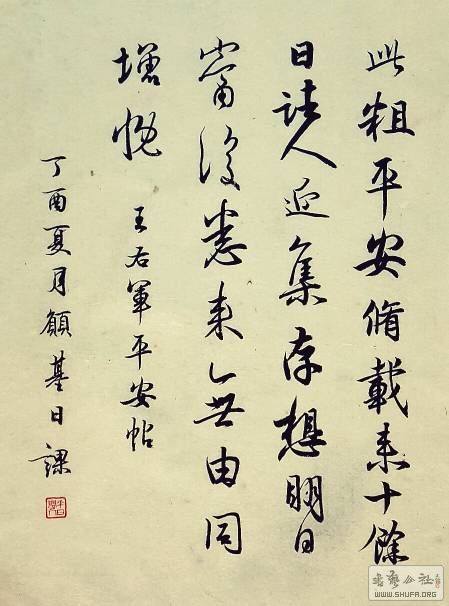 此粗平安脩載来十餘
日諸人近集存想明日
當復悉来無由同
增慨 王右軍平安帖
丁酉夏月顧基日課
書藝公社
WWW.SHUFA.ORG